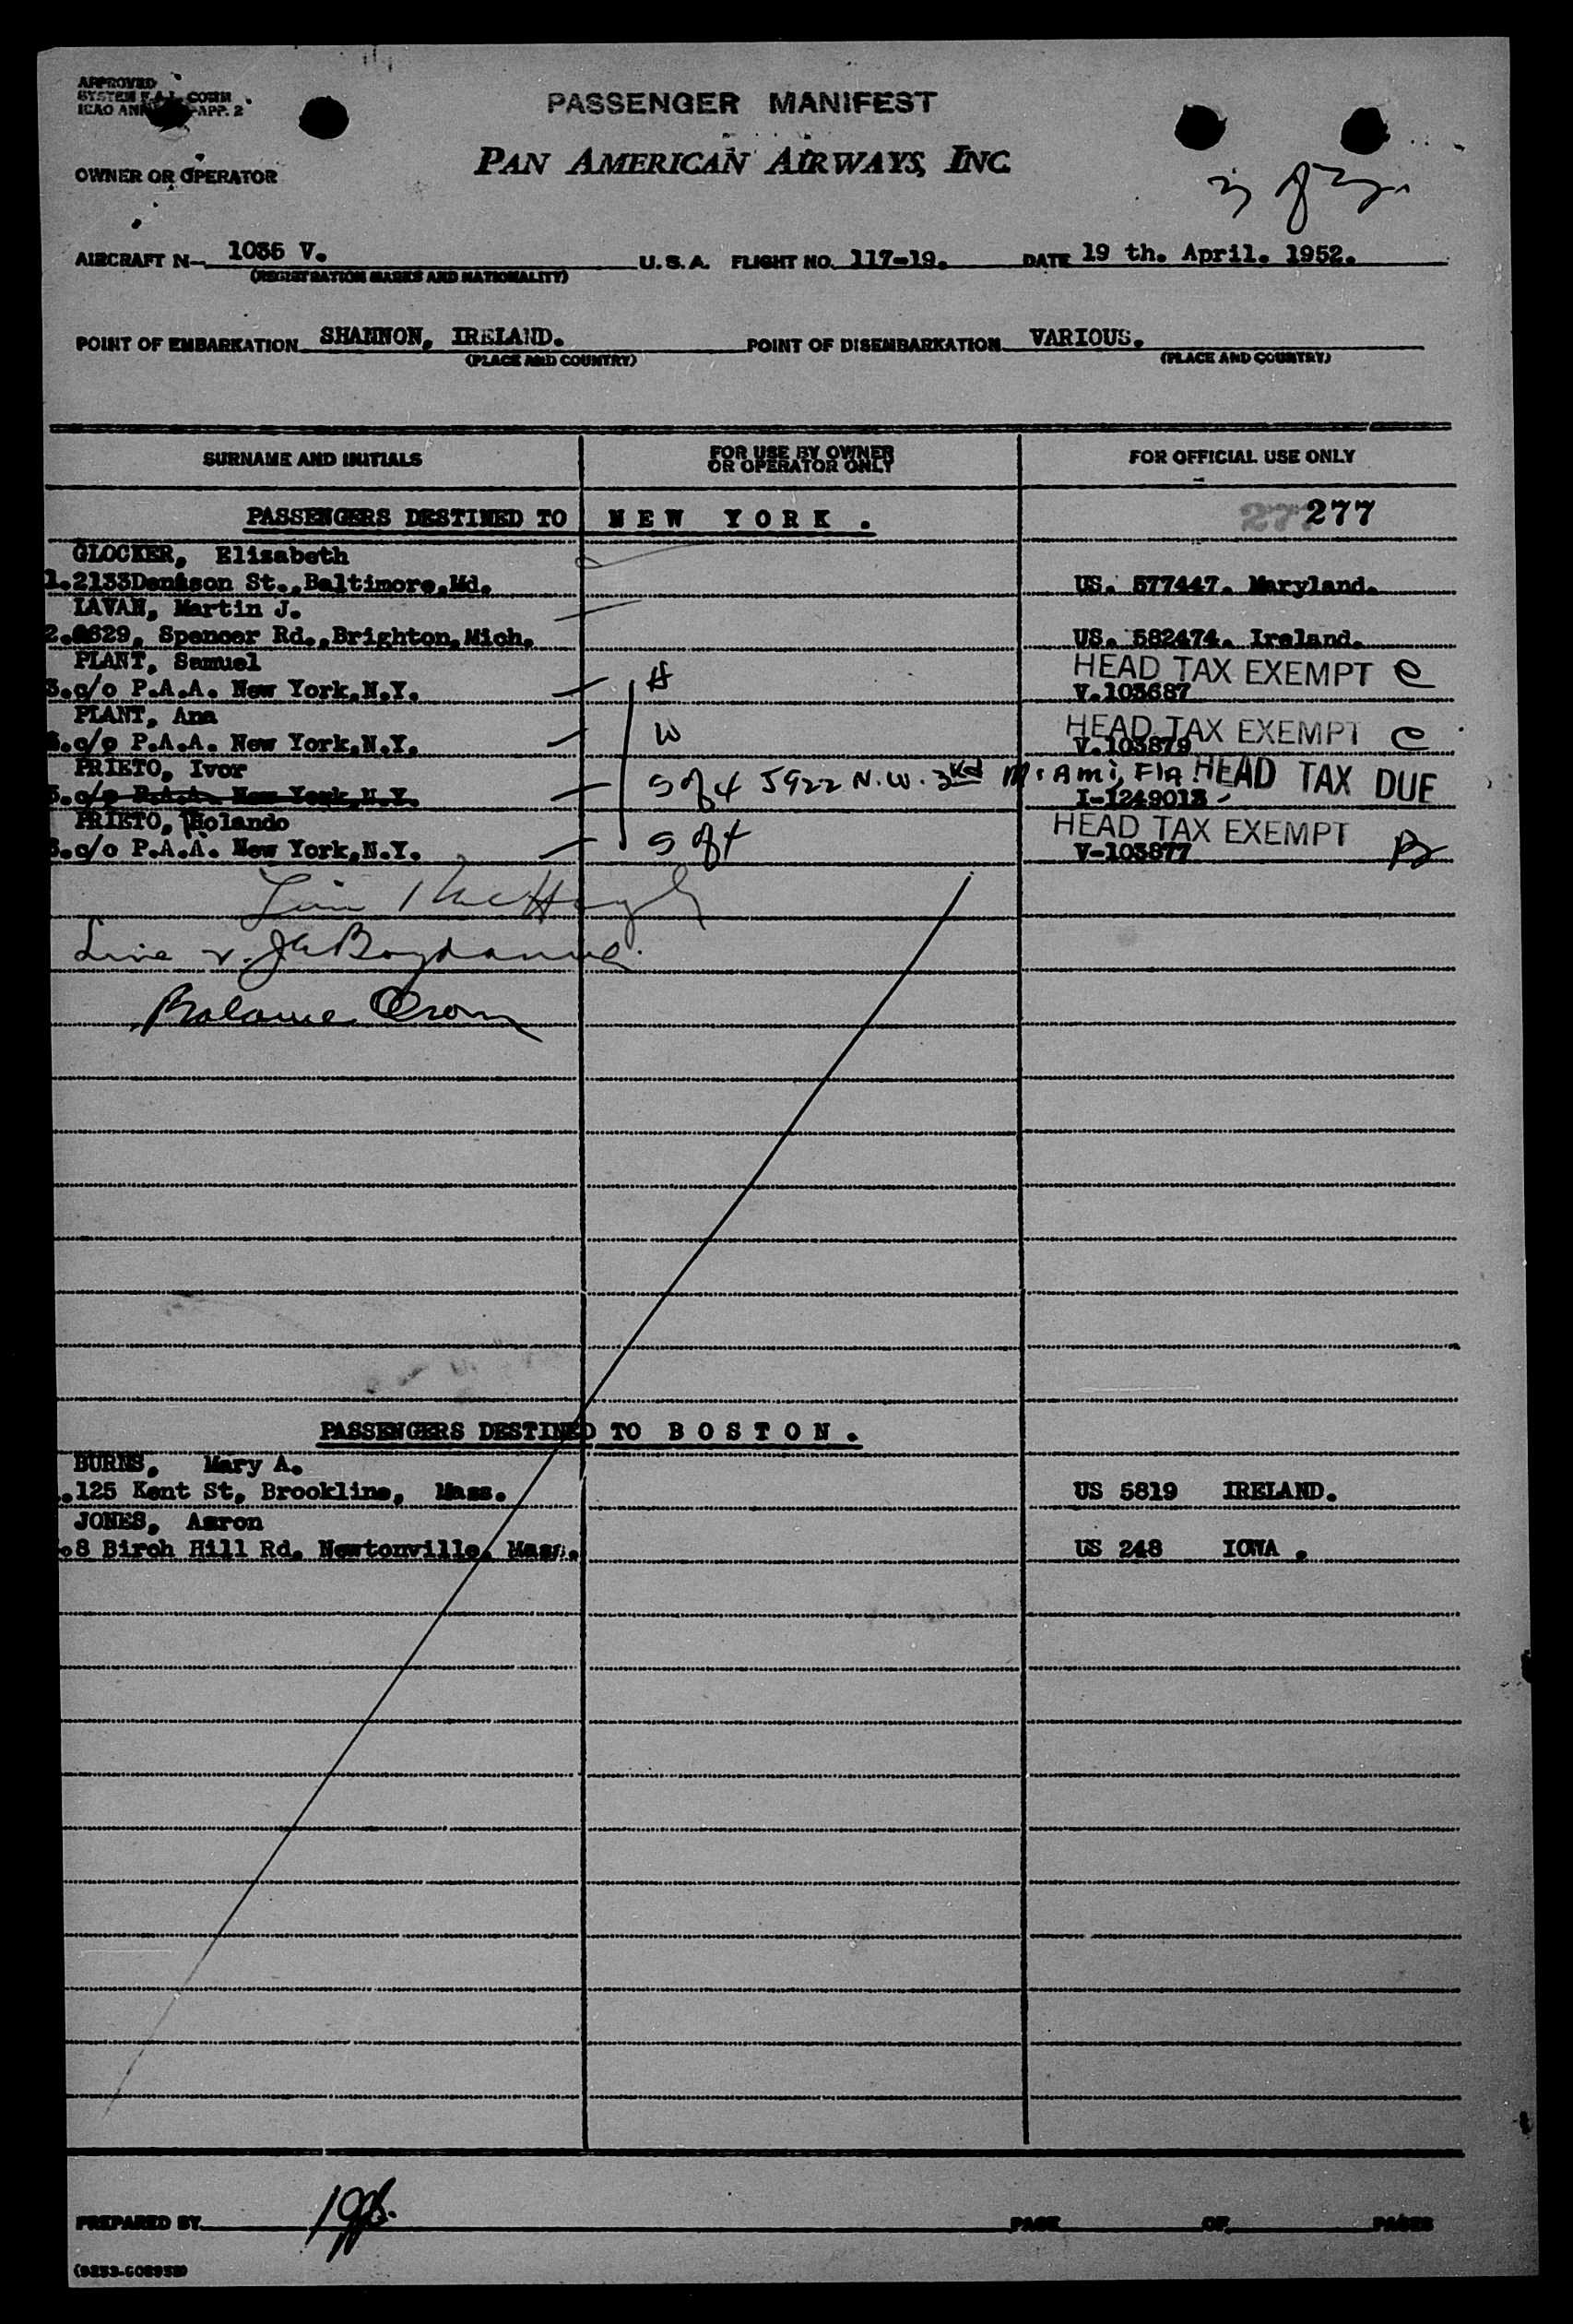 APPROVED
SYSTEM F.A.L. COMM
ICAO APP. 2
PASSENGER MANIFEST
PAN AMERICAN AIRWAYS, INC.
OWNER OR OPERATOR
3 of 3
AIRCRAFT N- 1036 V. U.S.A. FLIGHT NO. 117-19. DATE 19 th. April. 1952.
(REGISTRATION MARKS AND NATIONALITY)
POINT OF EMBARKATION SHANNON, IRELAND. POINT OF DISEMBARKATION VARIOUS.
(PLACE AND COUNTRY) (PLACE AND COUNTRY)
SURNAME AND INITIALS FOR USE BY OWNER OR OPERATOR ONLY FOR OFFICIAL USE ONLY
PASSENGERS DESTINED TO NEW YORK. 277
GLOCKER, Elizabeth
1.2133Denison St.,Baltimore,Md. US. 577447. Maryland.
LAVAN, Martin J.
2. 629, Spencer Rd.,Brighton,Mich. US. 582474. Ireland.
PLANT, Samuel HEAD TAX EXEMPT C
3.c/o P.A.A. New York,N.Y. H V.103687
PLANT, Ana HEAD TAX EXEMPT C
c/o P.A.A. New York,N.Y. W V.103879
PRIETO, Ivor HEAD TAX DUE
c/o P.A.A. New York,N.Y. S of 4 5922 N.W. 3rd Miami, Fla I-1249013
PRIETO, Rolando HEAD TAX EXEMPT B
c/o P.A.A. New York,N.Y. S of 4 V-103877
PASSENGERS DESTINED TO BOSTON.
BURNS, Mary A.
.125 Kent St, Brookline, Mass. US 5819 IRELAND.
JONES, Aaron
8 Birch Hill Rd, Newtonville, Mass. US 248 IOWA .
PREPARED BY PAGE OF PAGES